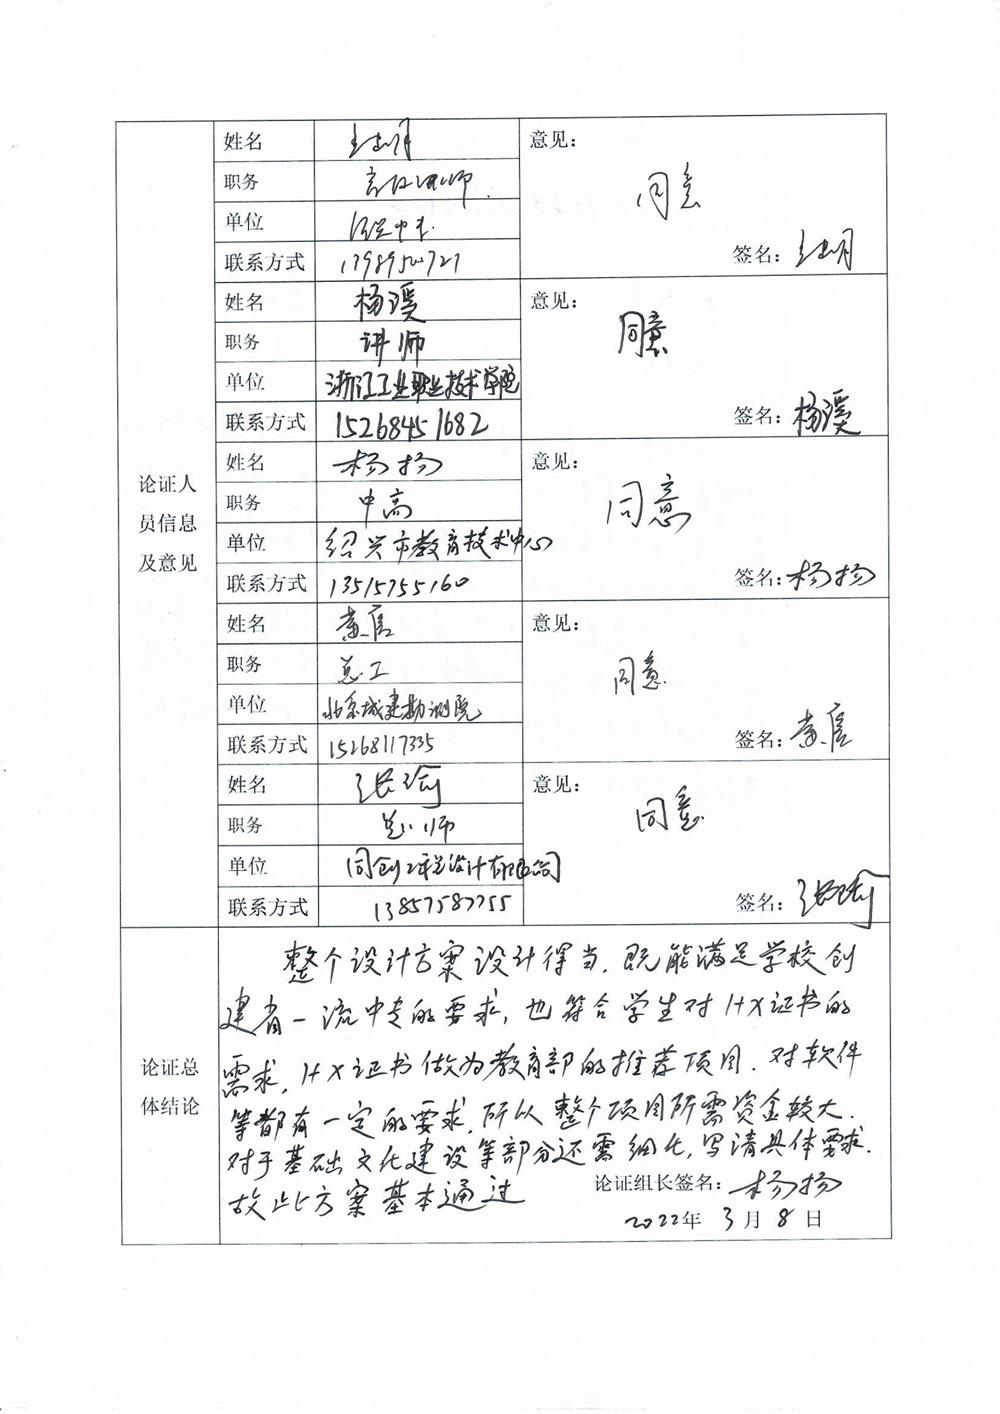 姓名
意见：
职务
同意
单位
联系方式
签名：
姓名 杨溪
意见：
职务 讲师
同意
单位 浙江工业职业技术学院
联系方式 15268451682
签名：杨溪
姓名 杨扬
意见：
职务 中高
同意
单位 绍兴市教育技术中心
联系方式 13515755160
签名：杨扬
姓名
意见：
职务 总工
同意
单位 北京城建勘测院
联系方式 15268117335
签名：
姓名 张瑜
意见：
职务
同意
单位 同创工程设计有限公司
联系方式 13857587755
签名：张瑜
论证人
员信息
及意见
整个设计方案设计得当，既能满足学校创
建省一流中专的要求，也符合学生对1+X证书的
需求，1+X证书做为教育部的推荐项目，对软件
等都有一定的要求，所以整个项目所需资金较大.
对于基础文化建设等部分还需细化，写清具体要求.
故此方案基本通过
论证总
体结论
论证组长签名：杨扬
2022年 3月 8日